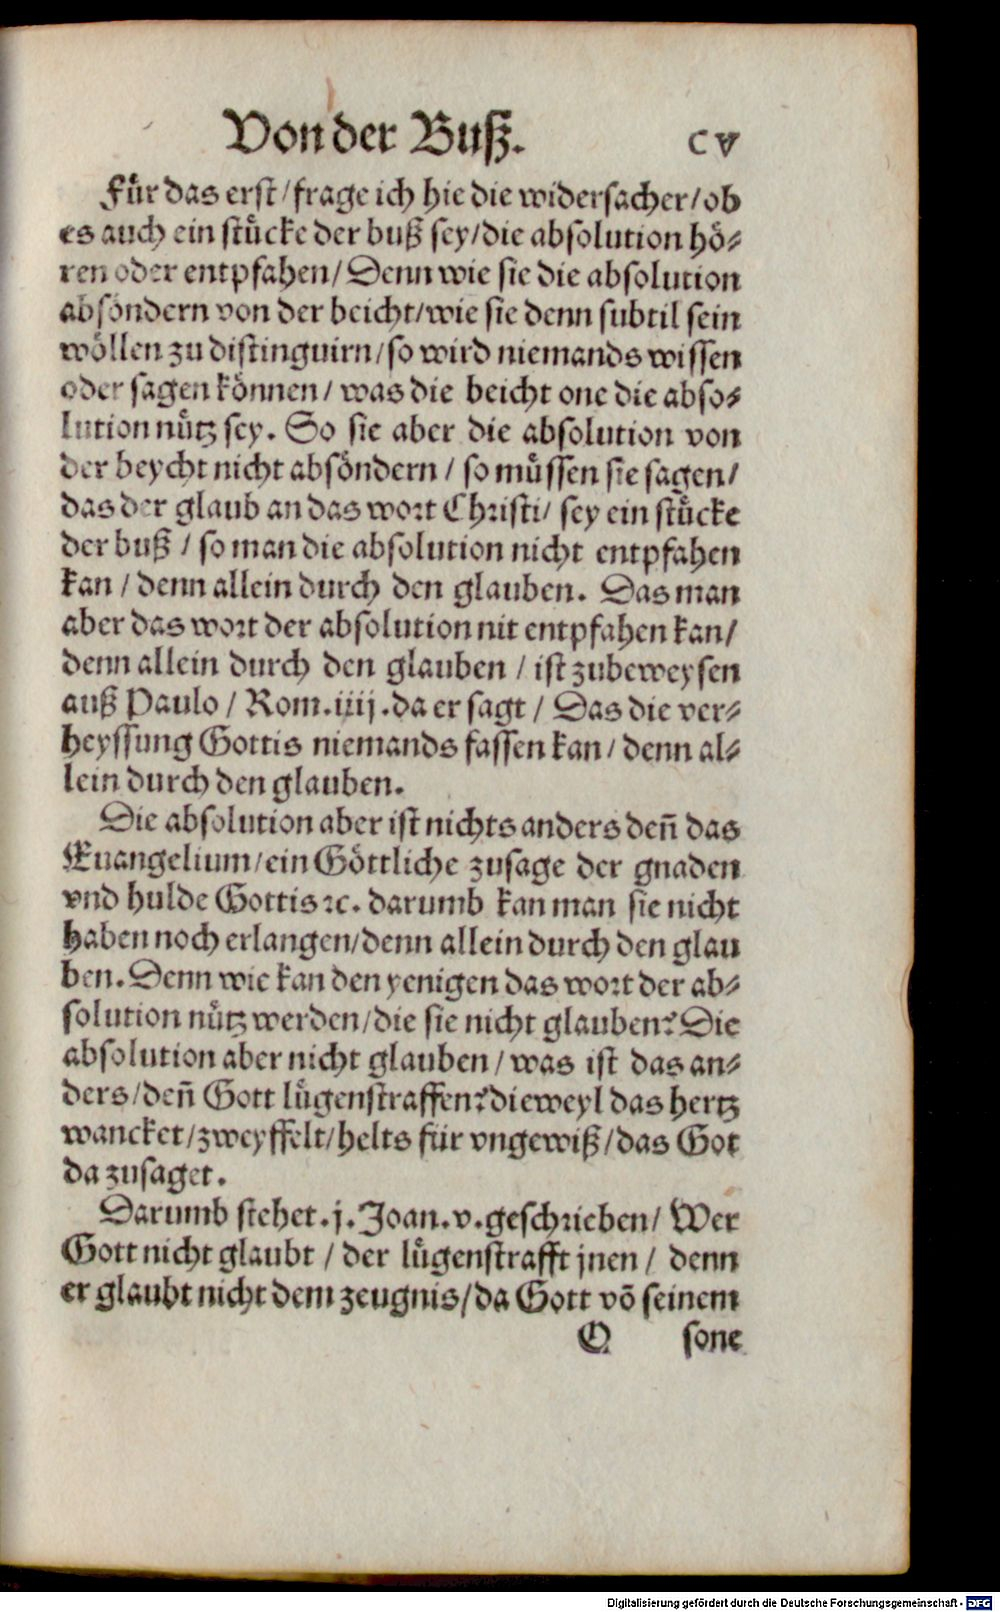 Von der Buß. CV
Für das erst/frage ich hie die widersacher/ob
es auch ein stücke der buß sey/die absolution hö⸗
ren oder entpfahen/Denn wie sie die absolution
absöndern von der beicht/wie sie denn subtil sein
wöllen zu distinguirn/so wird niemands wissen
oder sagen können/ was die beicht one die abso⸗
lution nütz sey. So sie aber die absolution von
der beycht nicht absöndern / so müssen sie sagen/
das der glaub an das wort Christi/ sey ein stücke
der buß / so man die absolution nicht entpfahen
kan / denn allein durch den glauben. Das man
aber das wort der absolution nit entpfahen kan/
denn allein durch den glauben / ist zubeweysen
auß Paulo / Rom.iiij.da er sagt / Das die ver⸗
heyssung Gottis niemands fassen kan/ denn al⸗
lein durch den glauben.
Die absolution aber ist nichts anders deñ das
Euangelium/ein Göttliche zusage der gnaden
vnd hulde Gottis ꝛc. darumb kan man sie nicht
haben noch erlangen/denn allein durch den glau
ben. Denn wie kan den yenigen das wort der ab⸗
solution nütz werden/die sie nicht glauben? Die
absolution aber nicht glauben / was ist das an⸗
ders/deñ Gott lügenstraffen? dieweyl das hertz
wancket/zweyffelt/helts für vngewiß/das Got
da zusaget.
Darumb stehet.j. Joan.v.geschrieben/ Wer
Gott nicht glaubt / der lügenstrafft jnen / denn
er glaubt nicht dem zeugnis/da Gott võ seinem
Q sone
Digitalisierung gefördert durch die Deutsche Forschungsgemeinschaft - DFG